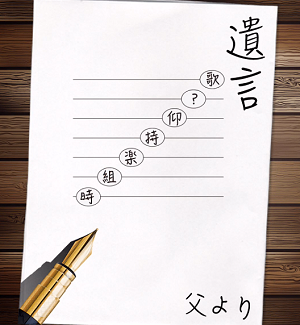 遺言
歌
?
仰
持
楽
組
時
父より